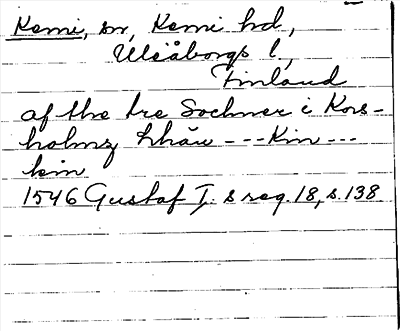 Kemi, sn, Kemi hd,
Uleåborgs l,
Finland
af the tre Sochner i Kors-
holmz hhäu --- Kin ---
kin
1546 Gustaf I:s reg. 18, s. 138